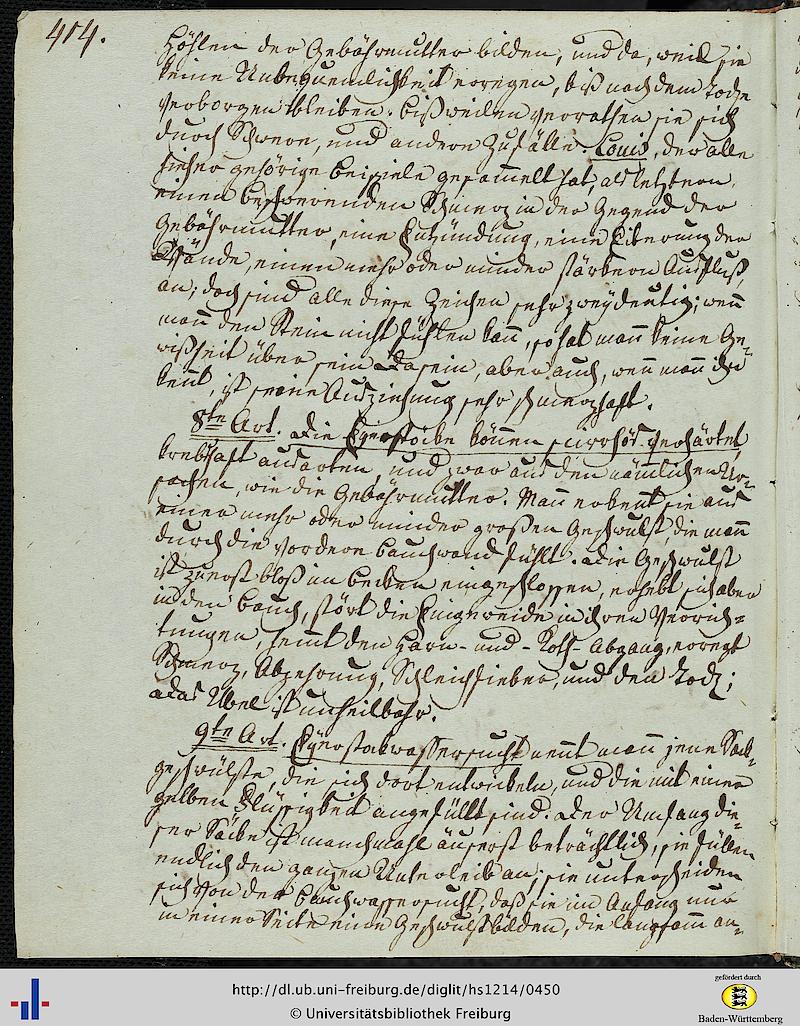 414.
Höhlen der Gebährmutter bilden, und da, weil sie
keine Unbequemlichkeit erregen, biß nach dem Tode
verborgen bleiben. bißweilen verrathen sie sich
durch Schwere, und andere Zufälle. Louis, der alle
hieher gehörige beispiele gesammelt hat, als letztern,
einen beschwerenden Schmerz in der Gegend der
Gebährmutter, eine Entzündung, eine Eiterung der
Wände, einen mehr oder minder stärkern Ausfluß,
an; doch sind alle diese Zeichen sehr zweydeutig; wenn
mann den Stein nicht fühlen kann, so hat mann keine Ge-
wißheit über sein Dasein, aber auch, wenn mann ihn
kent, ist seine Ausziehung sehr schmerzhaft.
8te Art. Die Eyerstöcke können scirrhös, verhärtet,
krebshaft ausarten, und zwar aus den nämmlichen Ur-
sachen, wie die Gebährmutter. Mann erkent sie aus
einer mehr oder minder großen Geschwulst, die mann
durch die vordere bauchwand fühlt. Die Geschwulst
ist zuerst bloß im becken eingeschlossen, erhebt sich aber
in den bauch, stört die Eingeweide in ihren Verrich-
tungen, hemt den Harn- und Koth-Abgang, erregt
Schmerz, Abzehrung, Schleichfieber, und den Tod;
Das Übel ist unheilbahr.
9te Art. Eyerstockwassersucht nennt mann jene Sack-
geschwülste, die sich dort entwickeln, und die mit einer
gelben Flüssigkeit angefüllt sind. Der Umfang die-
ser Säcke ist manchmahl äuserst beträchtlich, sie füllen
endlich den ganzen Unterleib an; sie unterscheiden
sich von der bauchwassersucht, daß sie im Anfang nur
in einer Seite eine Geschwulst bilden, die langsamm an-
http://dl.ub.uni-freiburg.de/diglit/hs1214/0450
© Universitätsbibliothek Freiburg
gefördert durch
Baden-Württemberg